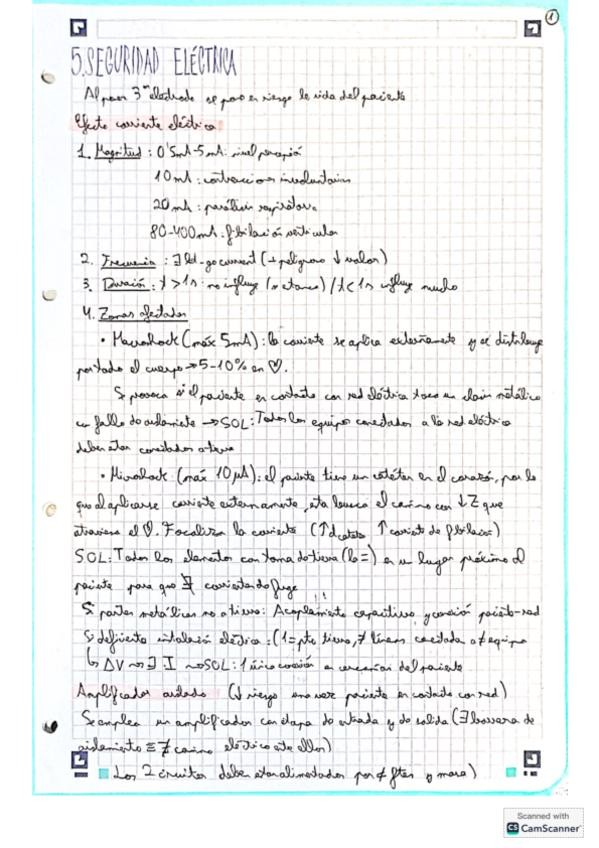 1
5. SEGURIDAD ELÉCTRICA
Al poner 3er electrodo se pone en riesgo la vida del paciente
Efecto corriente eléctrica
1. Magnitud: 0'5mA-5mA: nivel percepción
10mA: contracciones involuntarias
20mA: parálisis respiratoria
80-400mA: fibrilación ventricular
2. Frecuencia: ∃ let-go current (+ peligroso ↓ valor)
3. Duración: t > 1s: no influye / t < 1s influye mucho
4. Zonas afectadas
• Macroshock (máx 5mA): la corriente se aplica externamente y se distribuye
por todo el cuerpo → 5-10% en ♡.
Se provoca si el paciente en contacto con red eléctrica toca un chasis metálico
con fallo de aislamiento → SOL: Todos los equipos conectados a la red eléctrica
deben estar conectados a tierra
• Microshock (máx 10μA): el paciente tiene un catéter en el corazón, por lo
que al aplicarse corriente externamente, esta busca el camino con ↓Z que
atraviesa el ♡. Focaliza la corriente (↑d catéter ↑corriente de fibrilación)
SOL: Todos los elementos con toma de tierra (la =) en un lugar próximo al
paciente para que ∄ corrientes de fuga
Si partes metálicas no a tierra: Acoplamiento capacitivo y conexión paciente-red
Si defectuosa instalación eléctrica: (1 = pto tierra, ≠ líneas conectada a ≠ equipo
↳ ΔV → ∃ I → SOL: 1 única conexión en cercanías del paciente
Amplificador aislado (↓ riesgo una vez paciente en contacto con red)
Se emplea un amplificador con etapa de entrada y de salida (∃ barrera de
aislamiento ≡ ∄ camino eléctrico entre ellos)
Los 2 circuitos deben estar alimentados por ≠ ftes y masa)
Scanned with
CS CamScanner